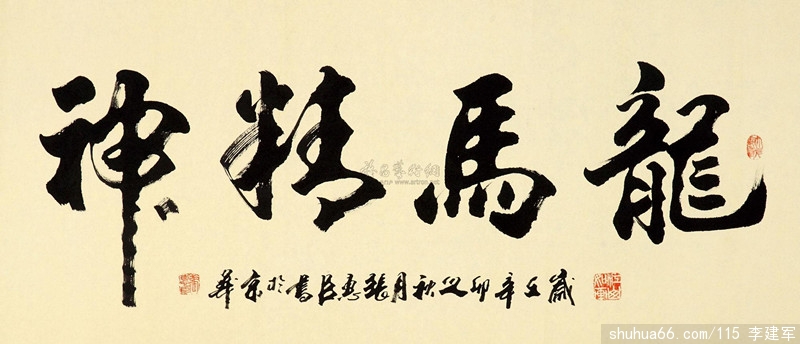 龍馬精神
歲在辛卯之秋月張惠臣書於京華
www.artron.net
shuhua66.com/115 李建军